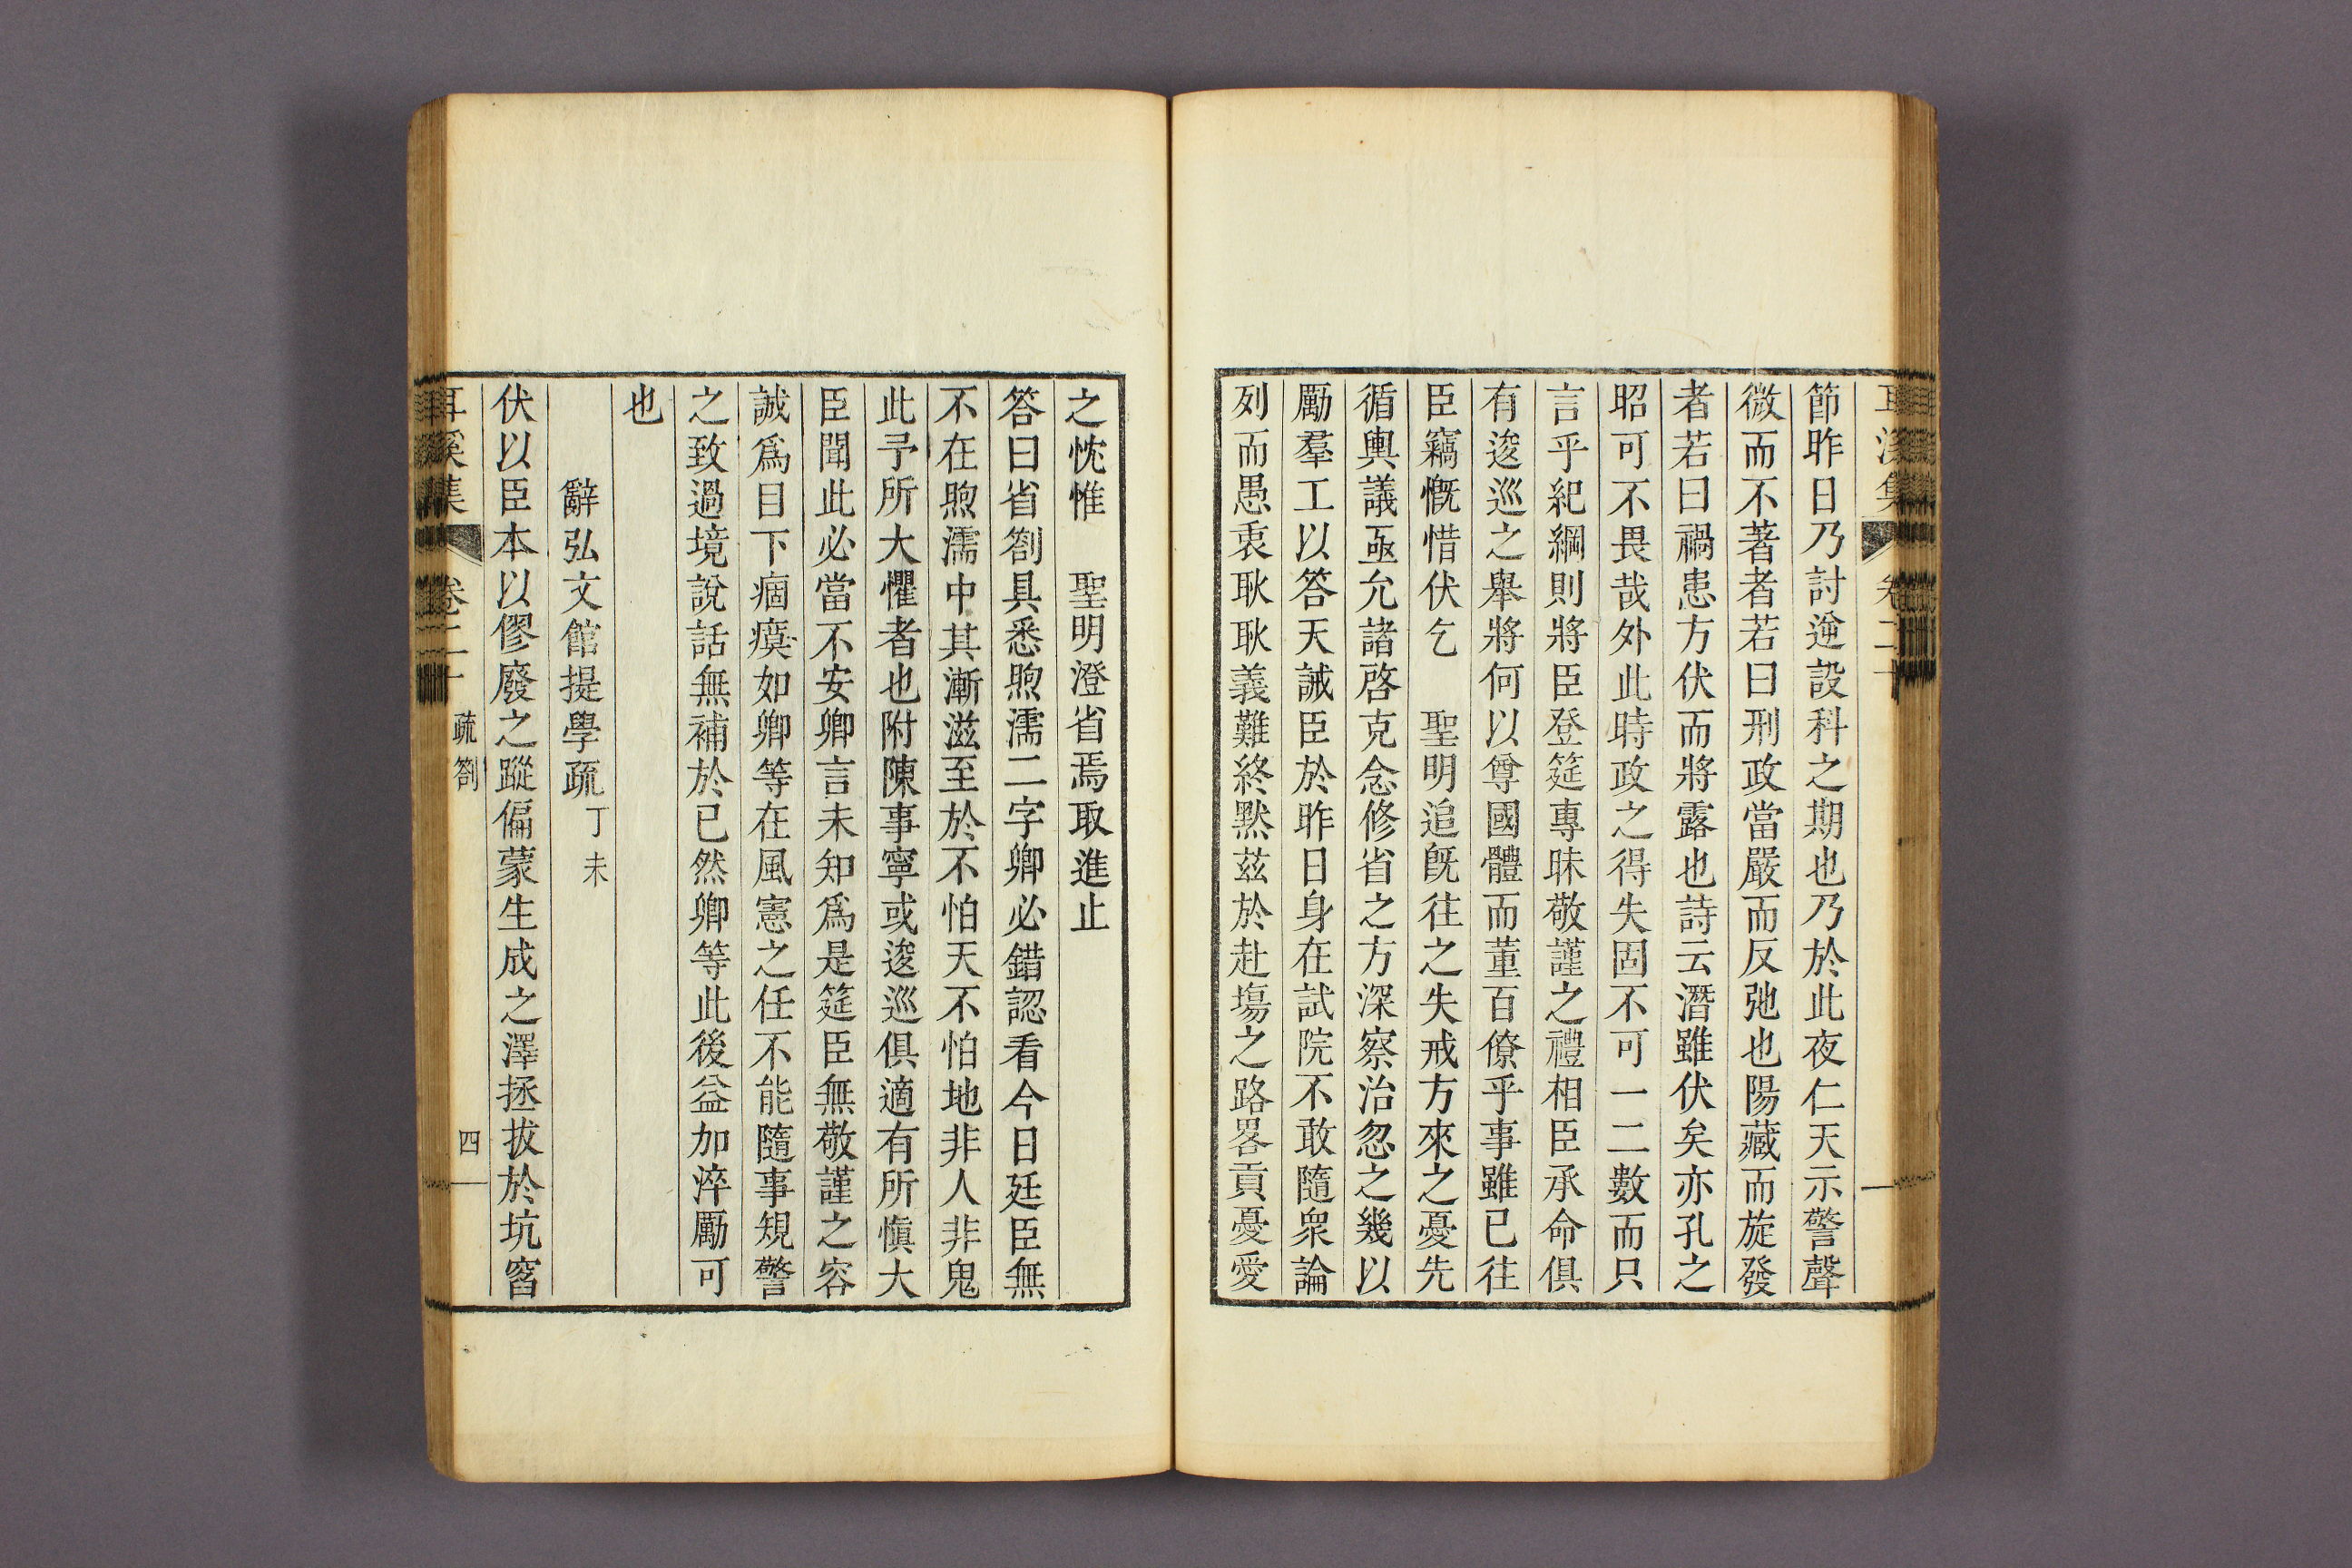 耳溪集 卷二十
節昨日乃討逆設科之期也乃於此夜仁天示警聲
微而不著者若曰刑政當嚴而反弛也陽藏而旋發
者若曰禍患方伏而將露也詩云潛雖伏矣亦孔之
昭可不畏哉外此時政之得失固不可一二數而只
言乎紀綱則將臣登筵專昧敬謹之禮相臣承命俱
有逡巡之舉將何以尊國體而董百僚乎事雖已往
臣竊慨惜伏乞 聖明追旣往之失戒方來之憂先
循輿議亟允諸啓克念修省之方深察治忽之幾以
勵羣工以答天誡臣於昨日身在試院不敢隨衆論
列而愚衷耿耿義難終默玆於赴塲之路畧貢憂愛
之忱惟 聖明澄省焉取進止
答曰省劄具悉煦濡二字卿必錯認看今日廷臣無
不在煦濡中其漸滋至於不怕天不怕地非人非鬼
此予所大懼者也附陳事寧或逡巡俱適有所愼大
臣聞此必當不安卿言未知爲是筵臣無敬謹之容
誠爲目下痼瘼如卿等在風憲之任不能隨事規警
之致過境說話無補於已然卿等此後益加淬勵可
也
辭弘文館提學疏 丁未
伏以臣本以僇廢之蹤偏蒙生成之澤拯拔於坑窞
耳溪集 卷二十 疏劄 四